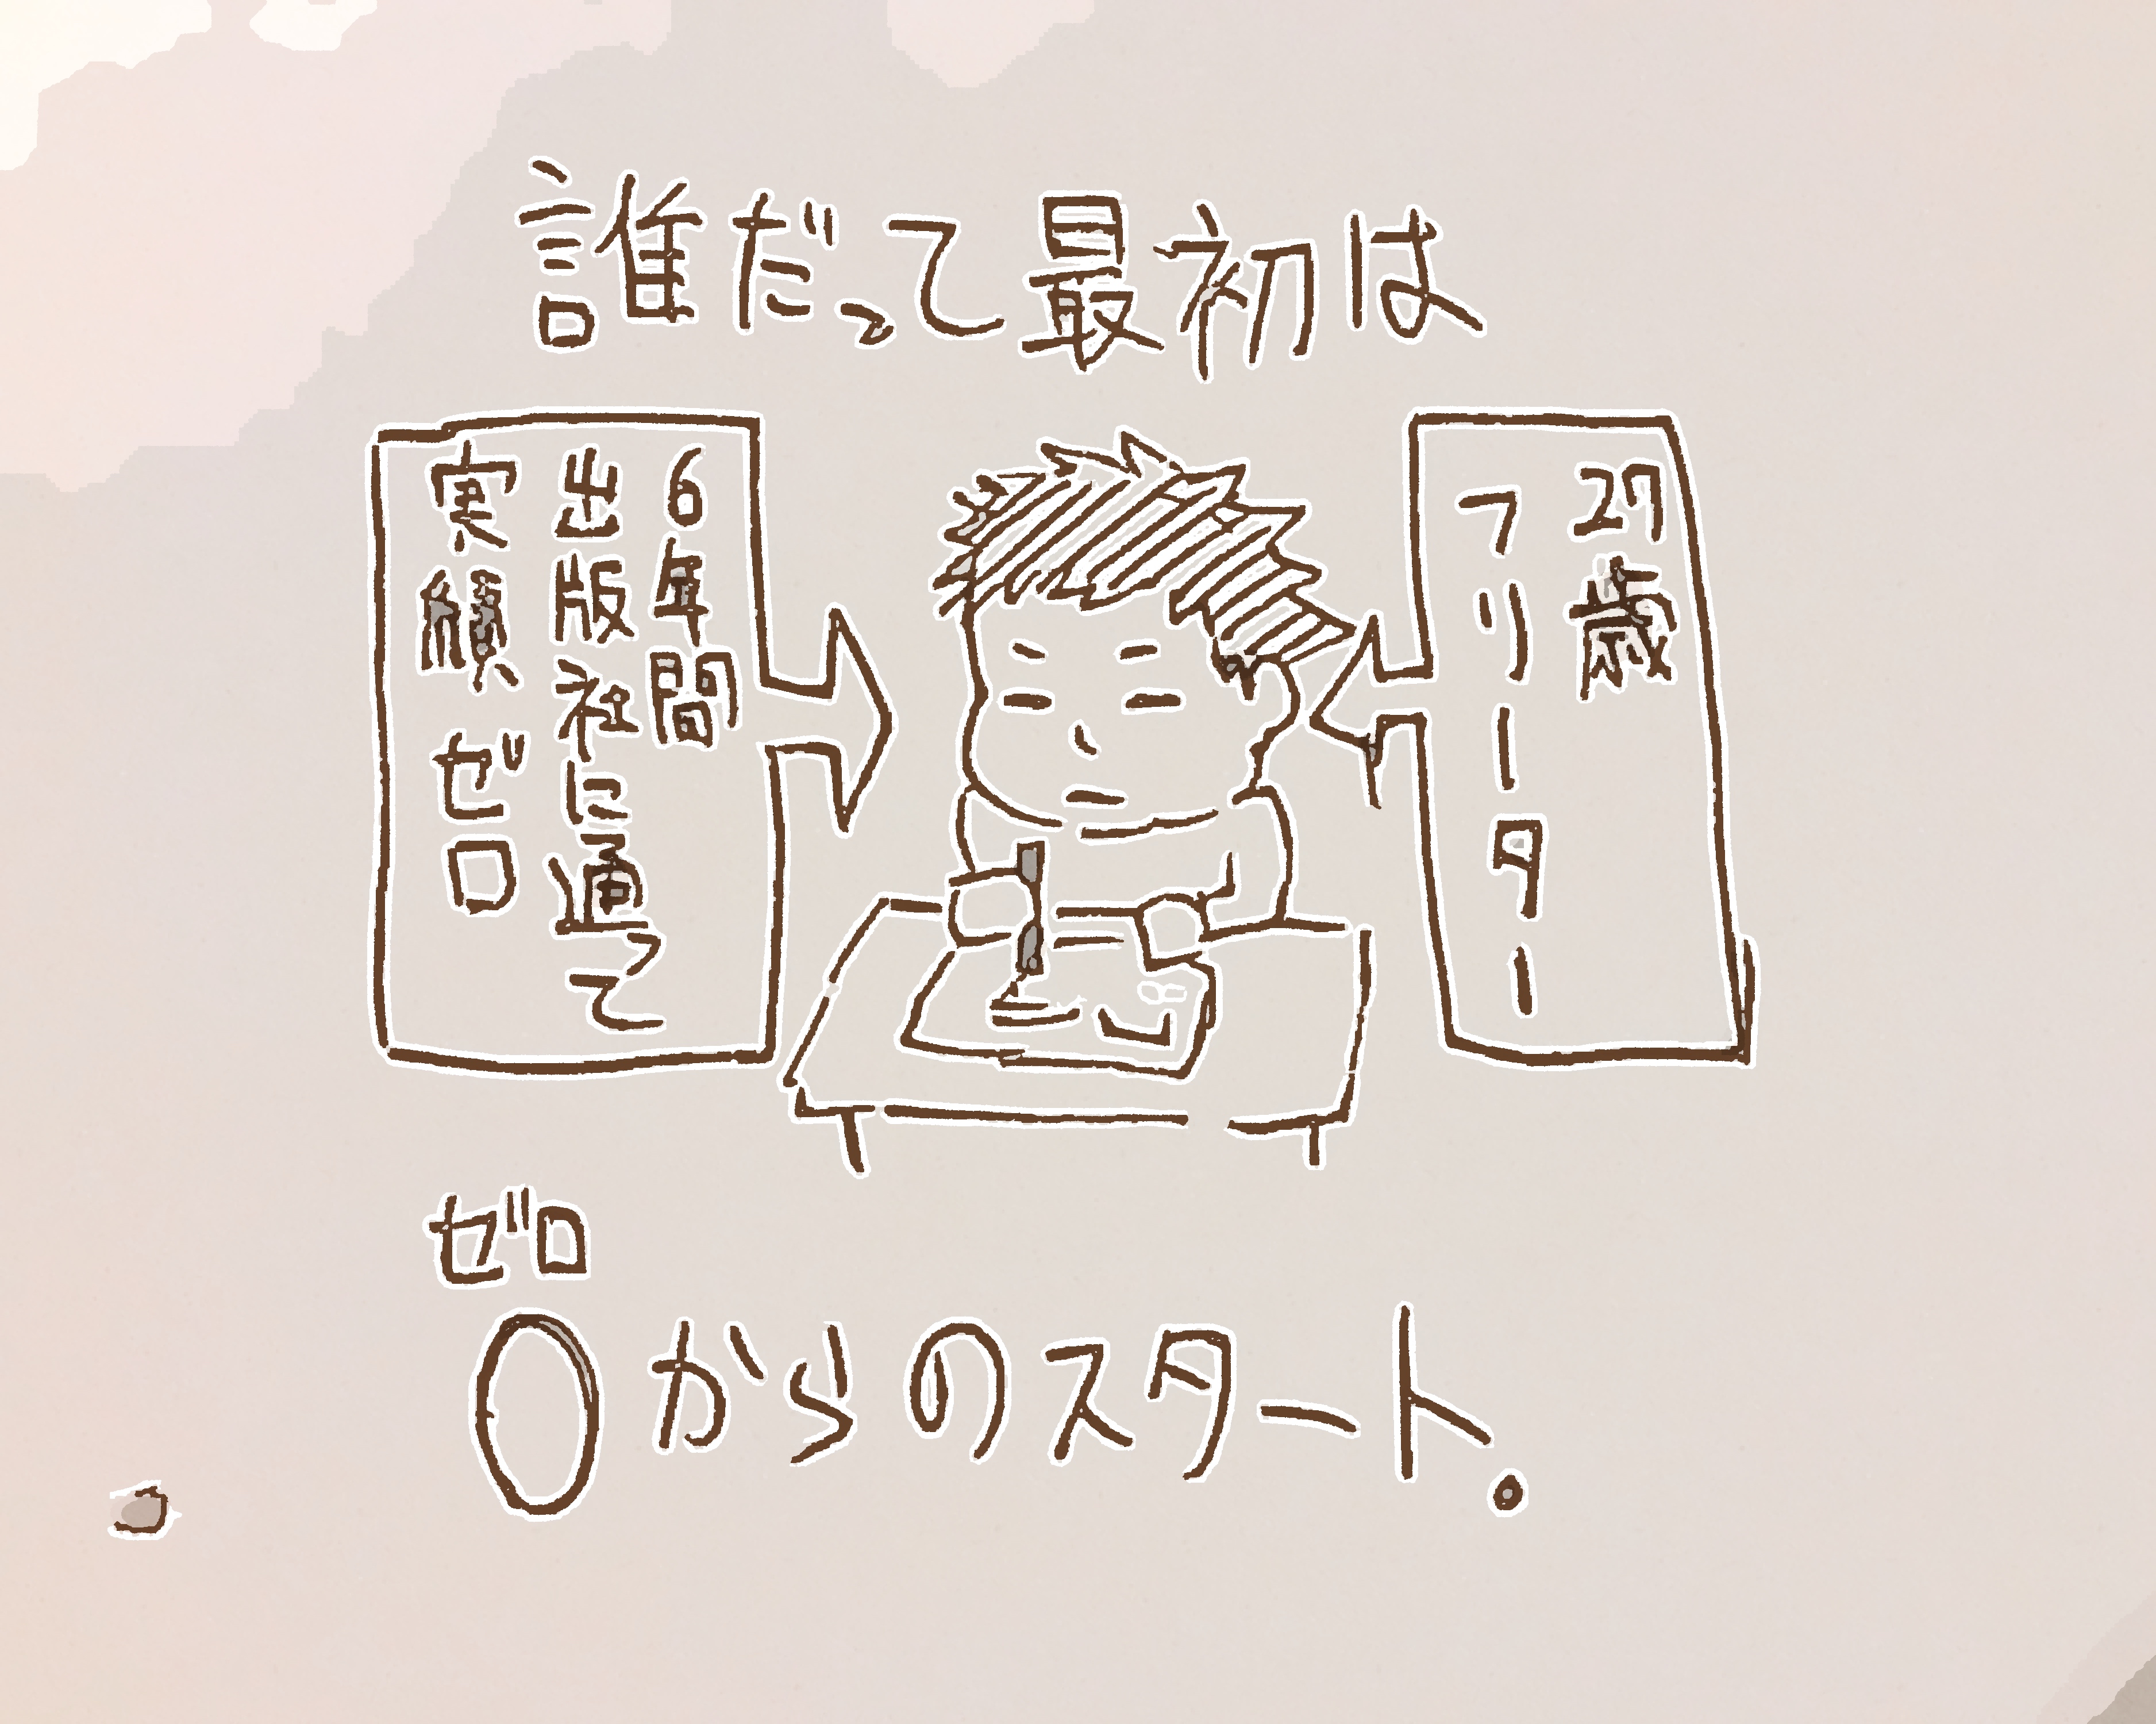 誰だって最初は
27歳
フリーター
6年間
出版社に通って
実績ゼロ
ゼロ
0からのスタート。